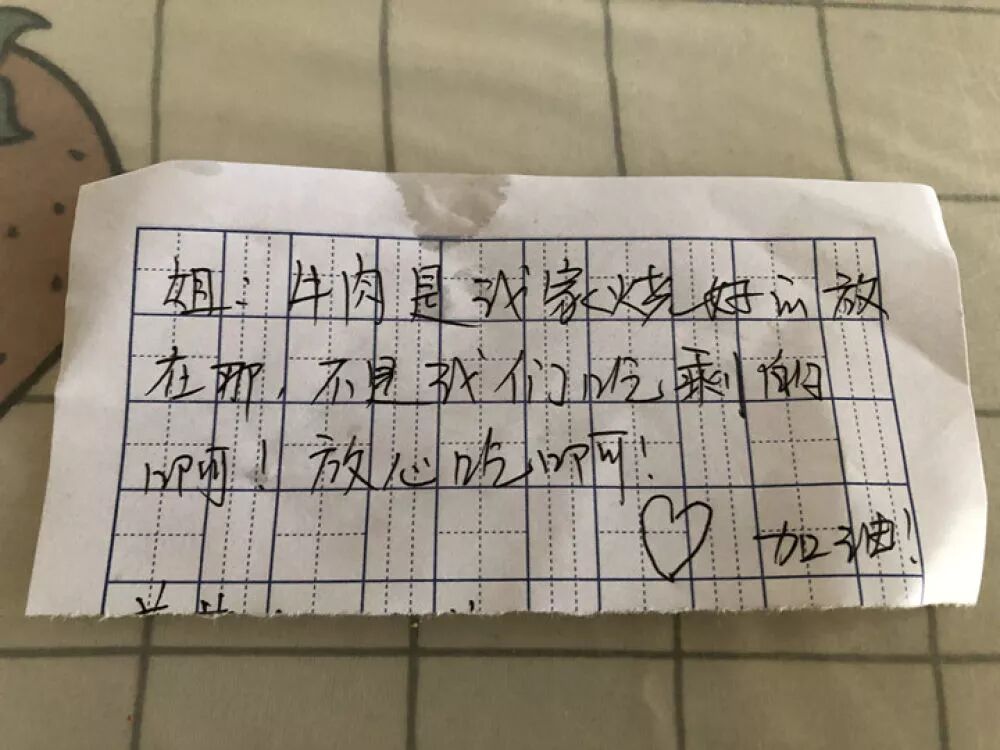 姐:牛肉是我家烧好的放
在那,不是我们吃剩的
啊!放心吃啊!
加油!